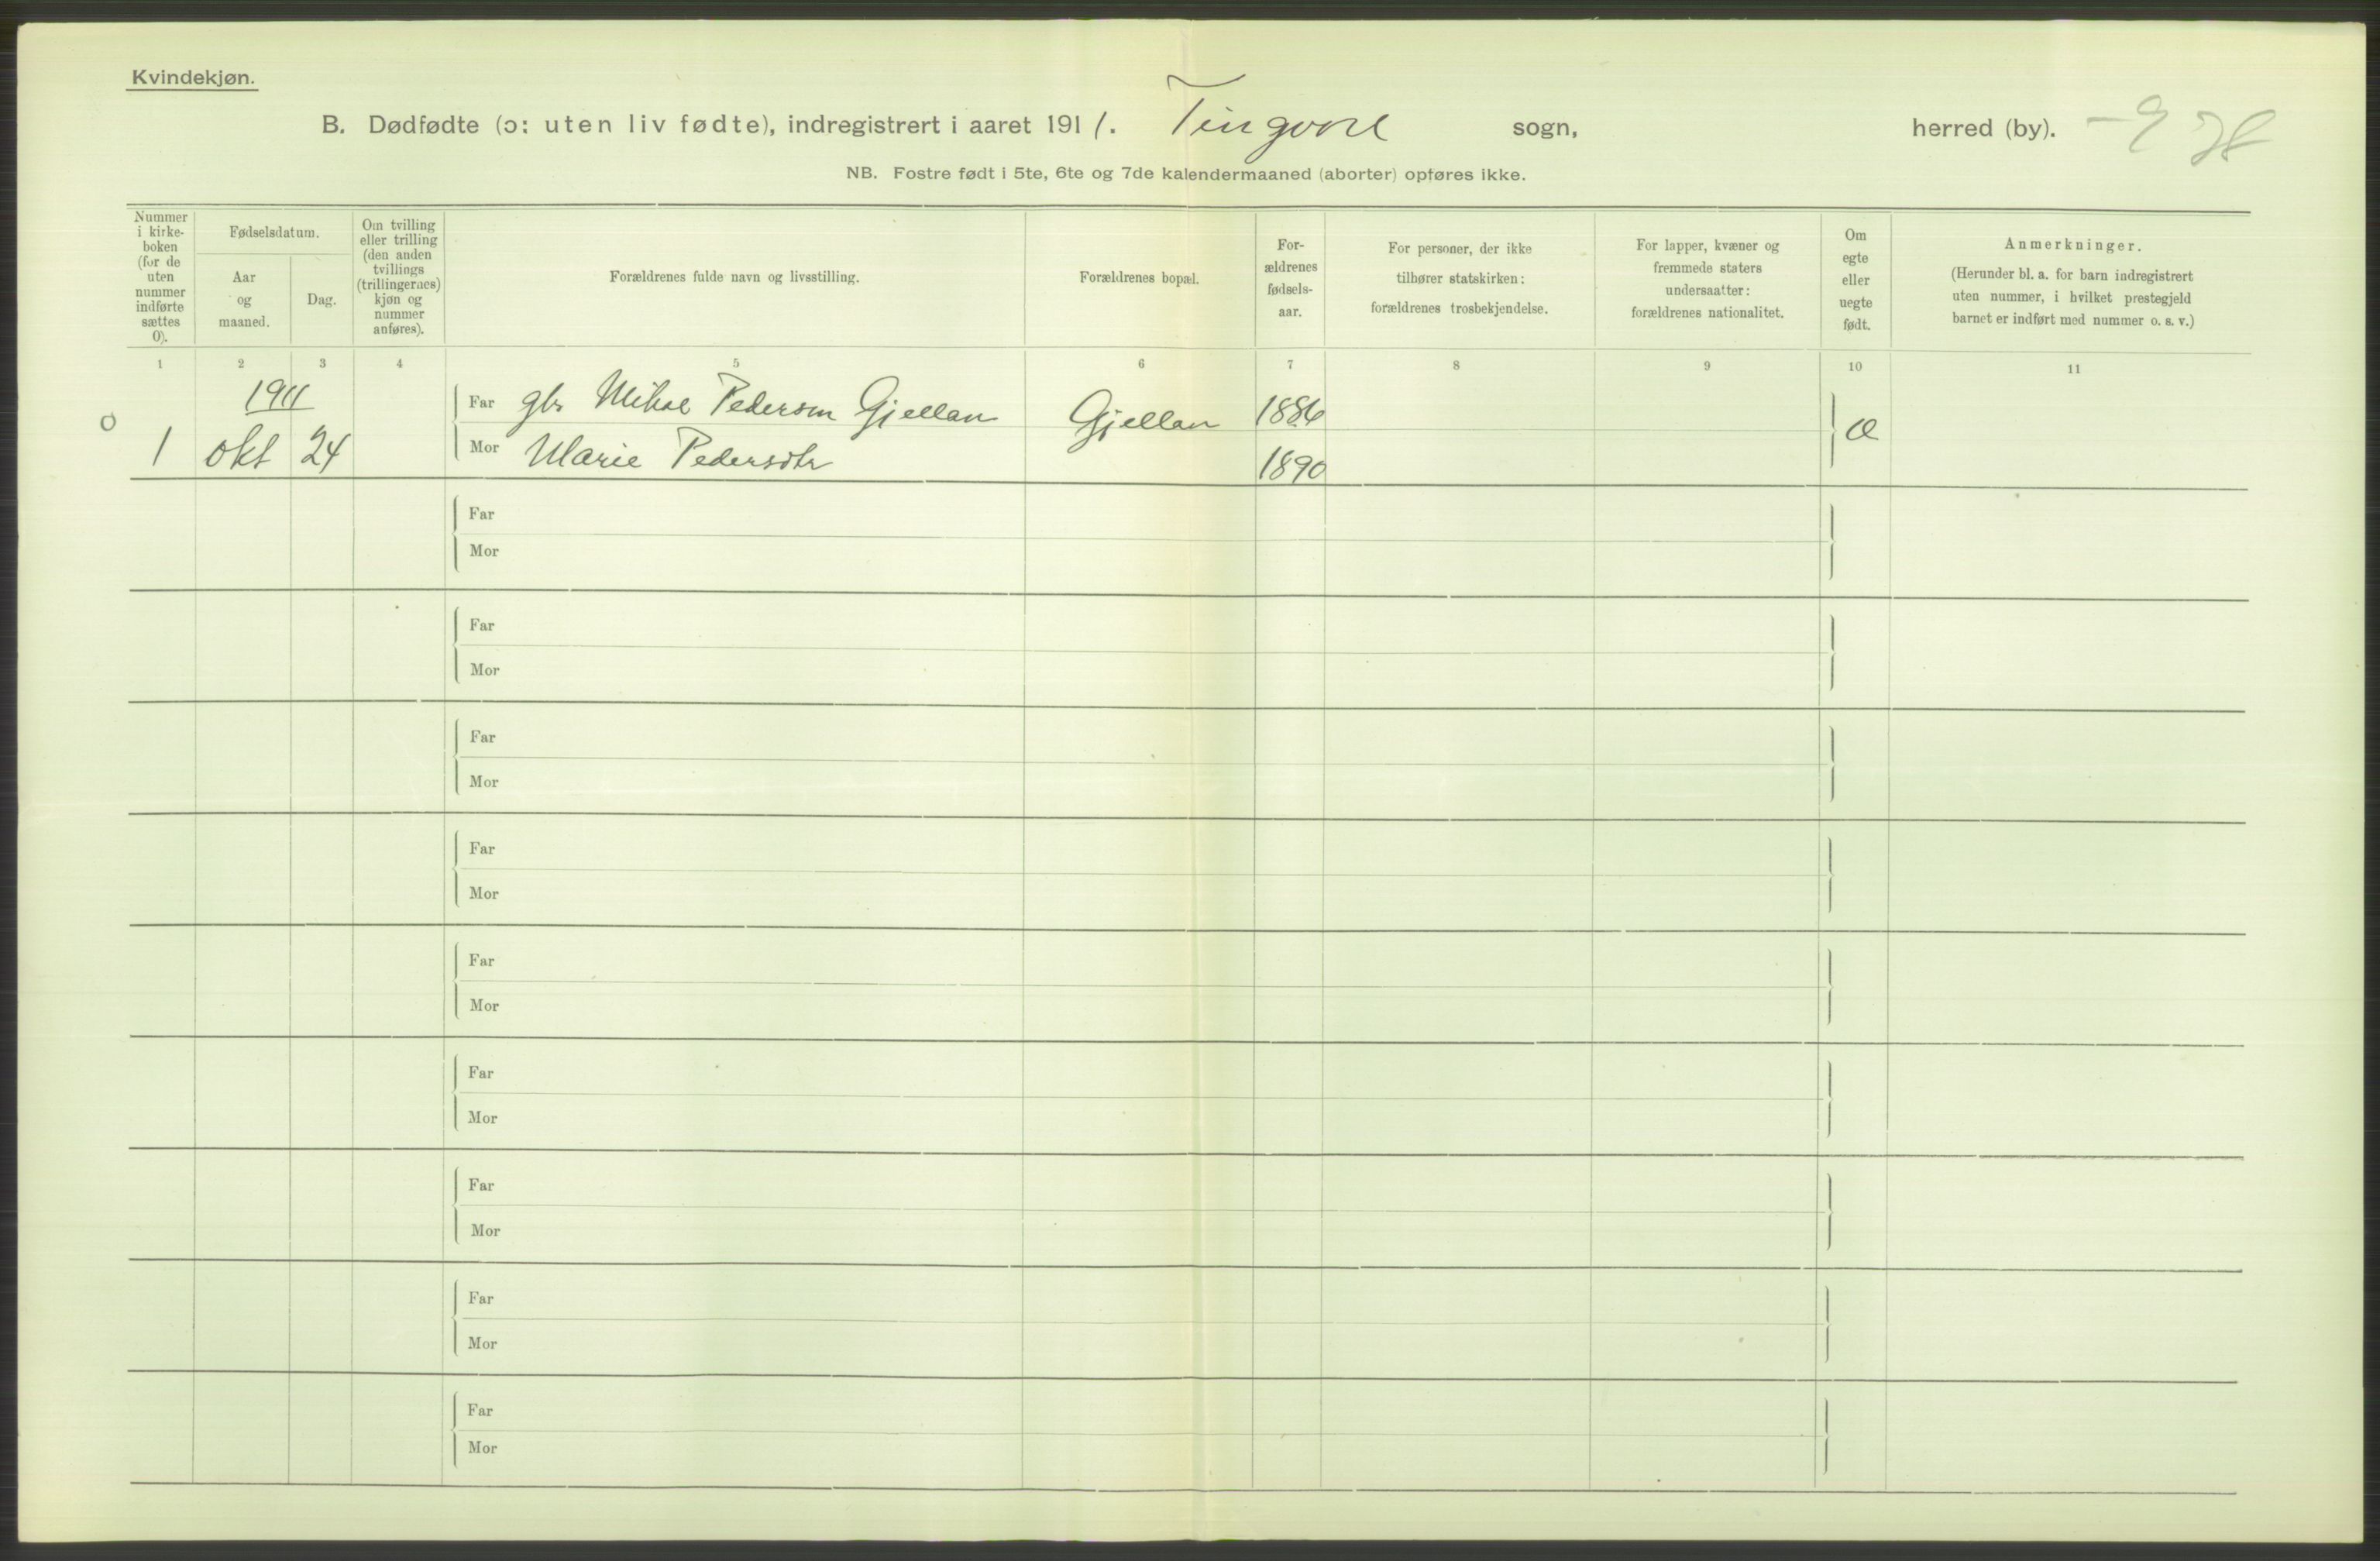 Kvindekjøn.
B. Dødfødte (ɔ: uten liv fødte), indregistrert i aaret 1911. Tingvoll sogn, herred (by).
NB. Fostre født i 5te, 6te og 7de kalendermaaned (aborter) opføres ikke.
Nummer
i kirke-
boken
(for de
uten
nummer
indførte
sættes
0).
Fødselsdatum.
Aar
og
maaned.
Dag.
Om tvilling
eller trilling
(den anden
tvillings
(trillingernes)
kjøn og
nummer
anføres).
Forældrenes fulde navn og livsstilling.
Forældrenes bopæl.
For-
ældrenes
fødsels-
aar.
For personer, der ikke
tilhører statskirken:
forældrenes trosbekjendelse.
For lapper, kvæner og
fremmede staters
undersaatter:
forældrenes nationalitet.
Om
egte
eller
uegte
født.
Anmerkninger.
(Herunder bl. a. for barn indregistrert
uten nummer, i hvilket prestegjeld
barnet er indført med nummer o. s. v.)
1 2 3 4 5 6 7 8 9 10 11
1911
Far gbr Mikal Pedersen Gjellan Gjellan 1886
o
1 okt 24 Mor Marie Pedersdtr 1890 Æ
Far
Mor
Far
Mor
Far
Mor
Far
Mor
Far
Mor
Far
Mor
Far
Mor
Far
Mor
Far
Mor